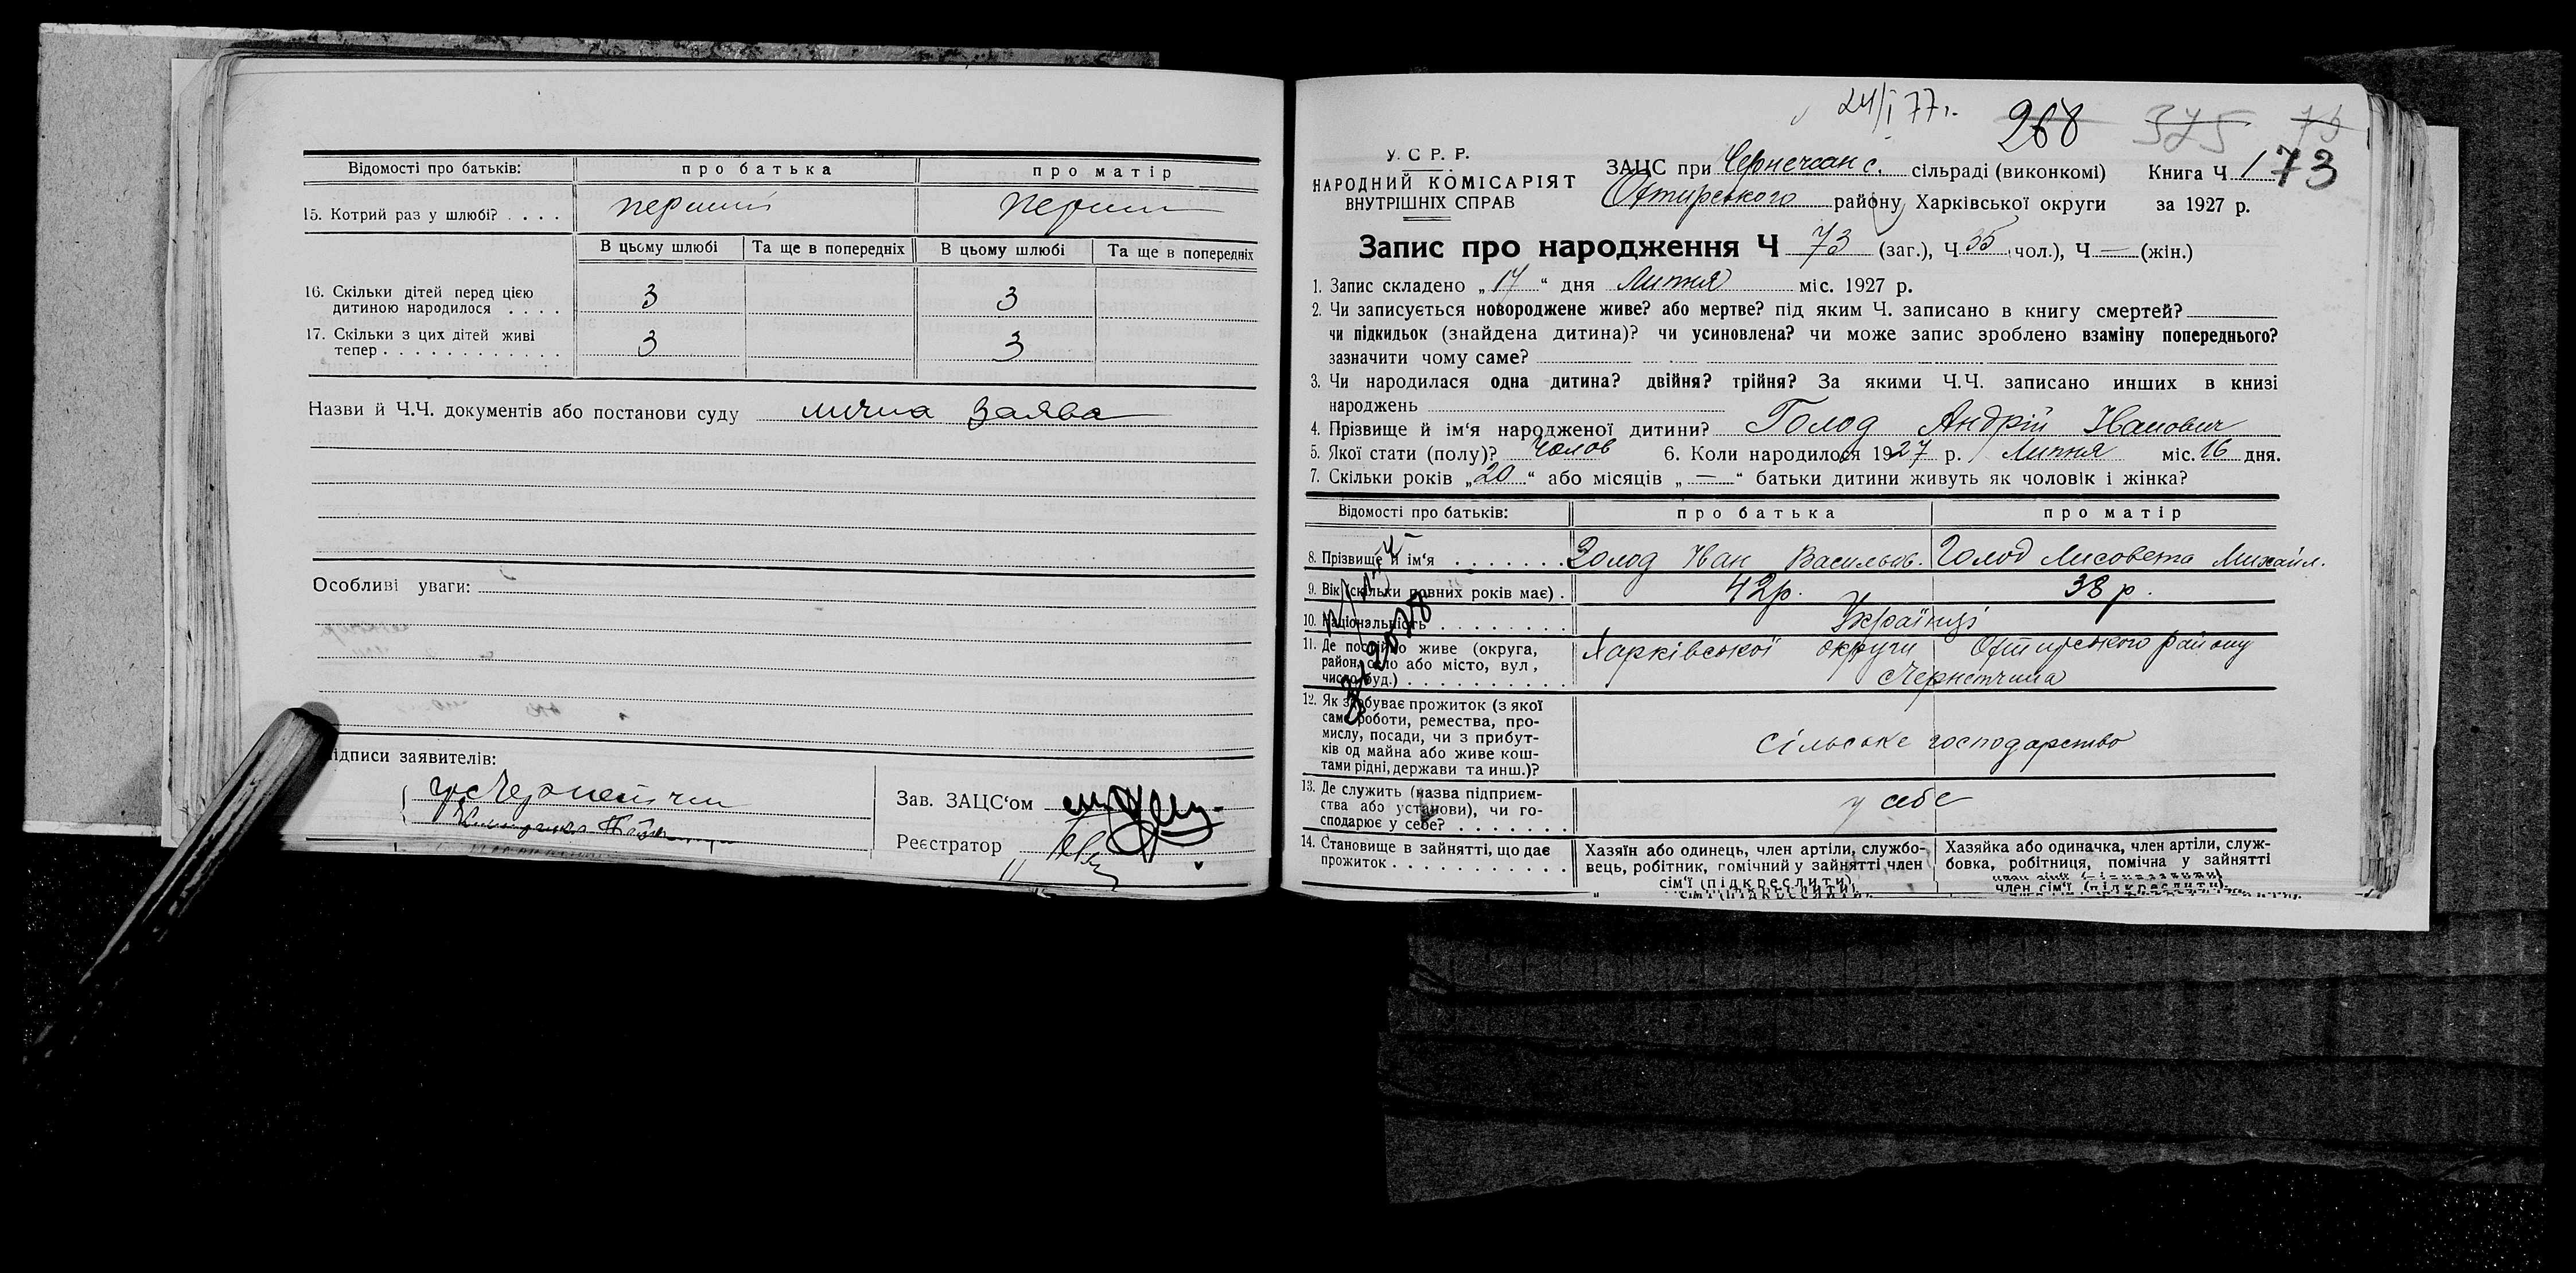 Відомості про батьків: про батька про матір
15. Котрий раз у шлюбі? . . . . перший перши
В цьому шлюбі Та ще в попередніх В цьому шлюбі Та ще в попередніх
16. Скільки дітей перед цією
дитиною народилося . . . . 3 3
17. Скільки з цих дітей живі
тепер . . . . . . . . . . . . 3 3
Назви й Ч.Ч. документів або постанови суду лична заява
Особливі уваги:
ідписи заявителів:
Зав. ЗАЦС‘ом
Реєстратор
24/I 77г.
268 375 73
У. С Р. Р.
НАРОДНИЙ КОМІСАРІЯТ
ВНУТРІШНІХ СПРАВ
ЗАЦС при Чернечан с. сільраді (виконкомі) Книга Ч 1 73
Охтирського району Харківської округи за 1927 р.
Запис про народження Ч 73 (заг.), Ч 35 чол.), Ч — (жін.)
1. Запис складено „ 17 “ дня Липня міс. 1927 р.
2. Чи записується новороджене живе? або мертве? під яким Ч. записано в книгу смертей?
чи підкидьок (знайдена дитина)? чи усиновлена? чи може запис зроблено взаміну попереднього?
зазначити чому саме?
3. Чи народилася одна дитина? двійня? трійня? За якими Ч.Ч. записано инших в книзі
народжень
4. Прізвище й ім‘я народженої дитини? Голод Андрій Іванович
5. Якої стати (полу)? Чолов 6. Коли народилося 1927 р. Липня міс. 16 дня.
7. Скільки років „ 20 “ або місяців „ — “ батьки дитини живуть як чоловік і жінка?
Відомості про батьків: про батька про матір
8. Прізвище й ім‘я . . . . . . . Голод Иван Васильов. Голод Лисовета Михайл.
9. Вік (скільки повних років має) . 42 р. 38 р.
10. Національність . . . . . . . . Українці
11. Де постійно живе (округа, Харківської округи Охтирського району
район, село або місто, вул, Чернетчина
число буд.) . . . . . . . . . .
12. Як здобуває прожиток (з якої
саме роботи, ремества, про-
мислу, посади, чи з прибут-
ків од майна або живе кош- сільське господарство
тами рідні, держави та инш.)?
13. Де служить (назва підприєм-
ства або установи), чи го- у себе
сподарює у себе? . . . . . . .
14. Становище в зайнятті, що дає Хазяїн або одинець, член артіли, службо- Хазяйка або одиначка, член артіли, служ-
прожиток . . . . . . . . . . вець, робітник, помічний у зайнятті, член бовка, робітниця, помічна у зайнятті
сім‘ї (підкреслити). член сім‘ї (підкреслити).